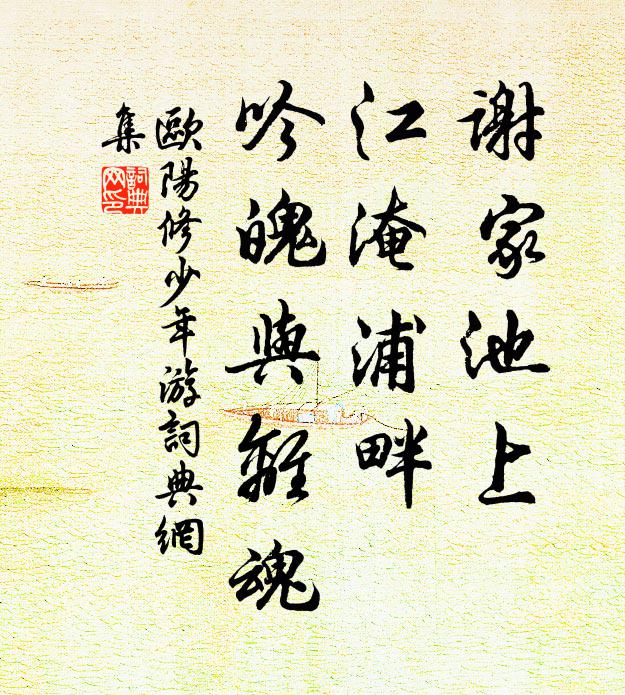 謝家池上
江淹浦畔
吟魄與離魂
歐陽修少年游詞典網
集
詞典網印